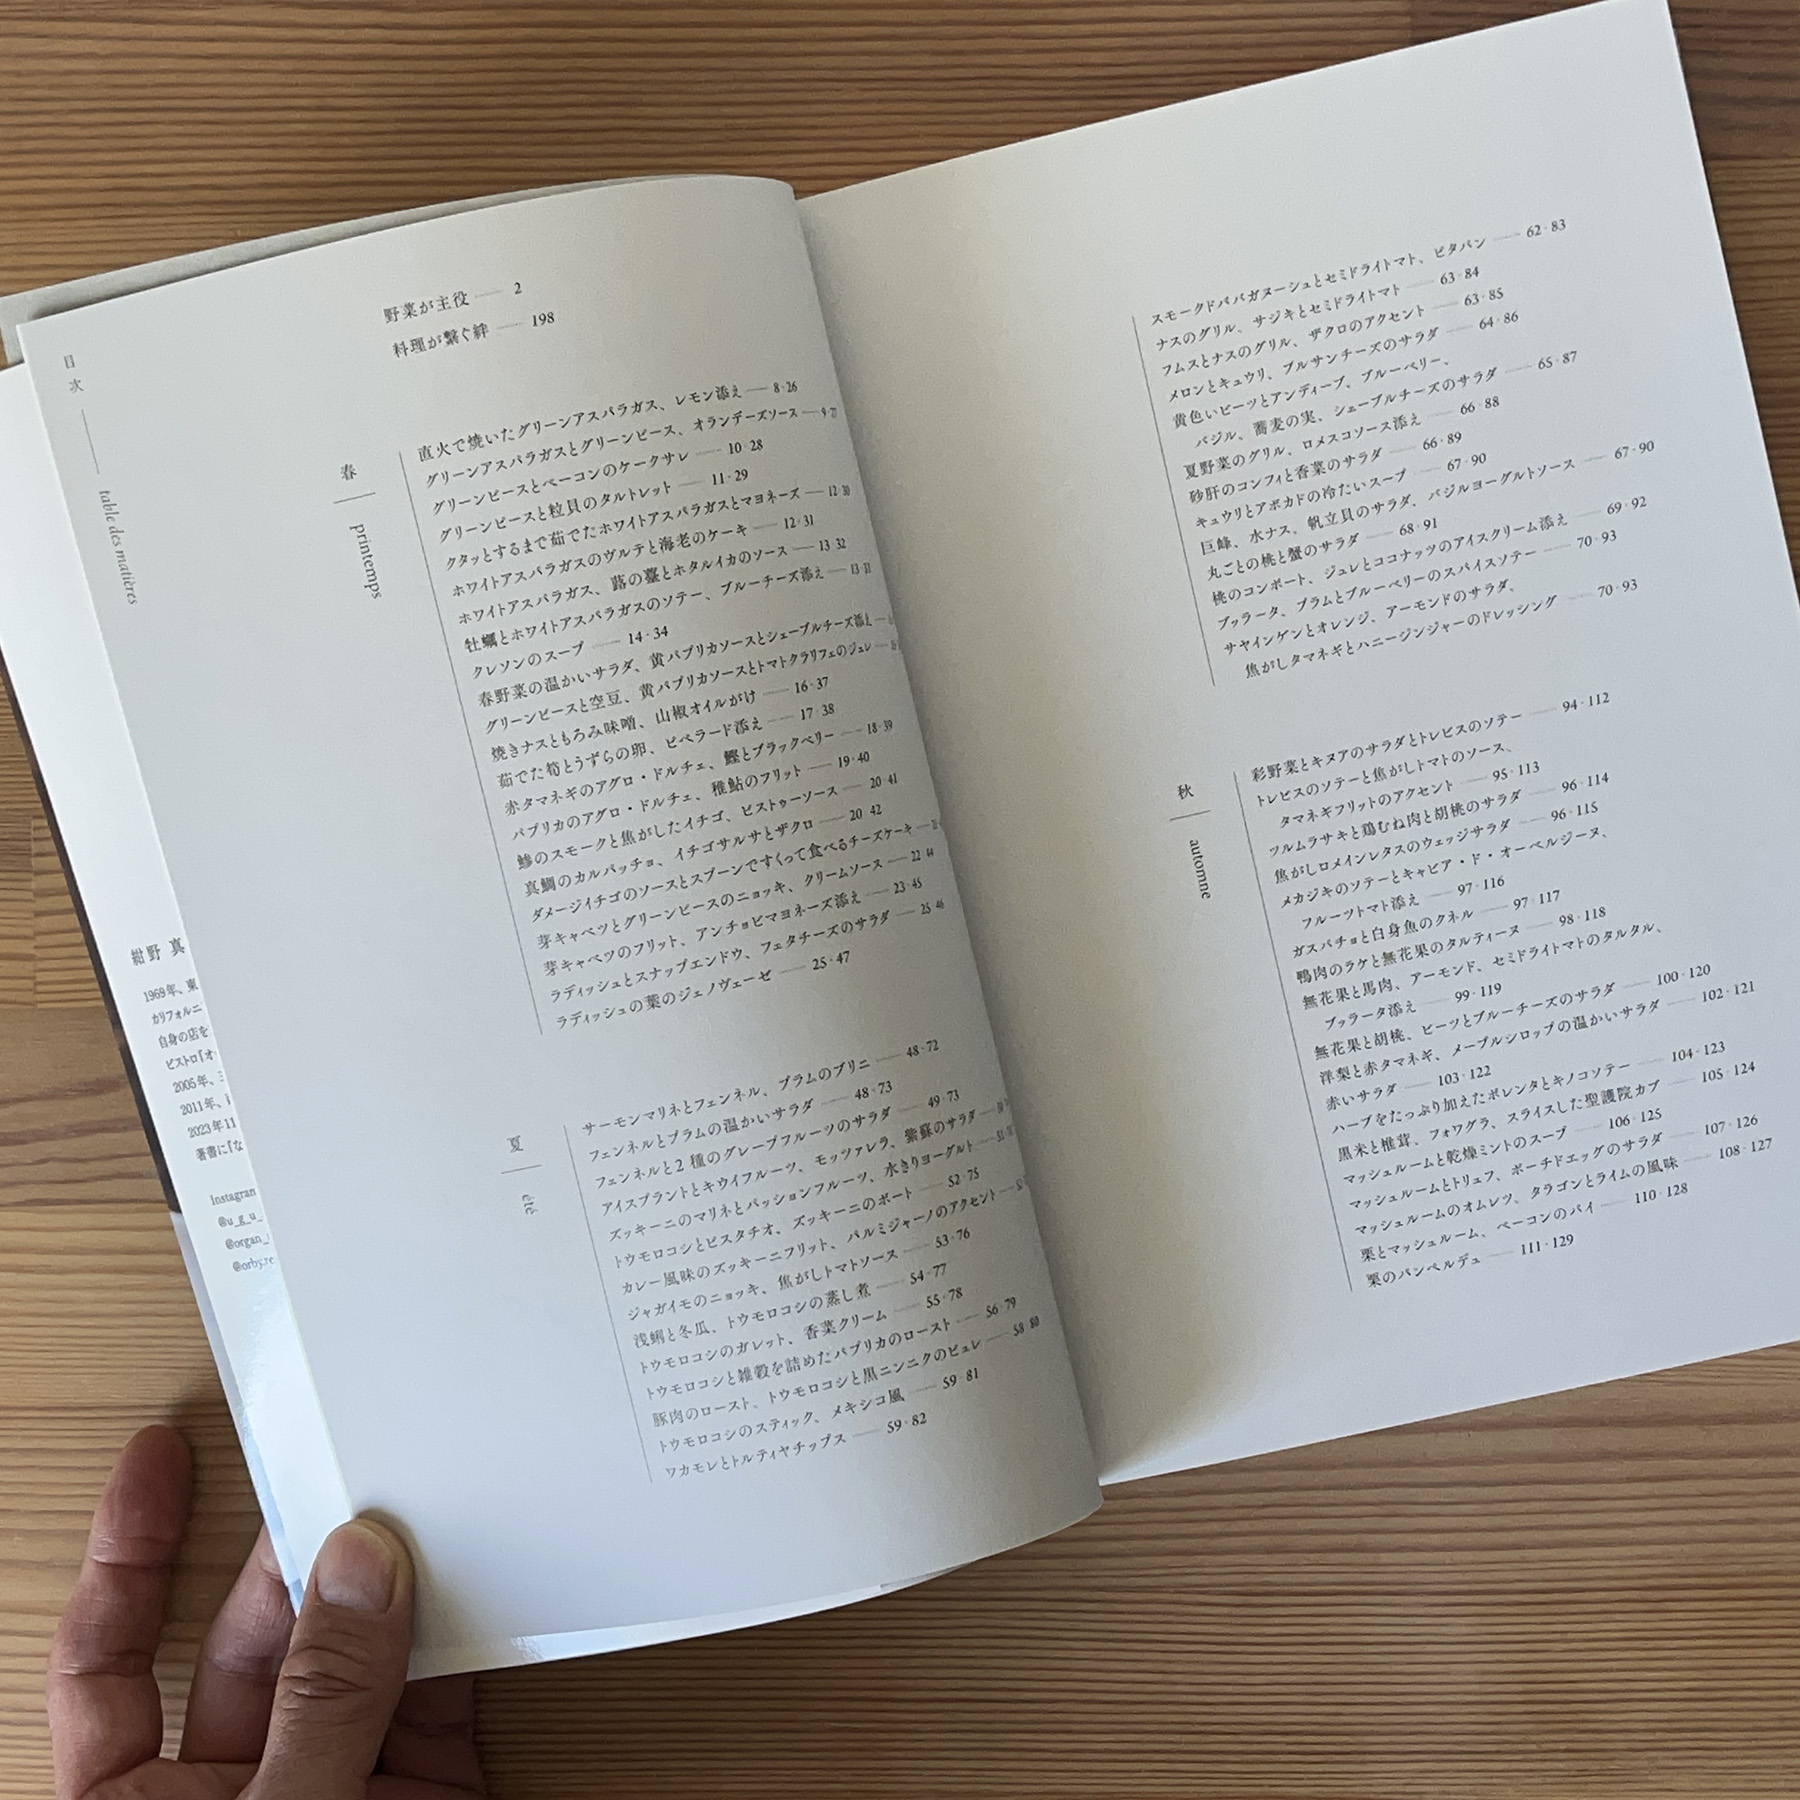 目次
table des matières
野菜が主役 2
料理が繋ぐ絆 198
春
printemps
直火で焼いたグリーンアスパラガス、レモン添え 8・26
グリーンアスパラガスとグリーンピース、オランデーズソース 9・27
グリーンピースとベーコンのケークサレ 10・28
グリーンピースと粒貝のタルトレット 11・29
クタッとするまで茹でたホワイトアスパラガスとマヨネーズ 12・30
ホワイトアスパラガスのヴルテと海老のケーキ 12・31
ホワイトアスパラガス、蕗の薹とホタルイカのソース 13・32
牡蠣とホワイトアスパラガスのソテー、ブルーチーズ添え
クレソンのスープ 14・34
春野菜の温かいサラダ、黄パプリカソースとシェーブルチーズ添え
グリーンピースと空豆、黄パプリカソースとトマトクラリフェのジュレ
焼きナスともろみ味噌、山椒オイルがけ 16・37
茹でた筍とうずらの卵、ピペラード添え 17・38
赤タマネギのアグロ・ドルチェ、鰹とブラックベリー 18・39
パプリカのアグロ・ドルチェ、稚鮎のフリット 19・40
鰺のスモークと焦がしたイチゴ、ピストゥーソース 20・41
真鯛のカルパッチョ、イチゴサルサとザクロ 20・42
ダメージイチゴのソースとスプーンですくって食べるチーズケーキ
芽キャベツとグリーンピースのニョッキ、クリームソース 22・44
芽キャベツのフリット、アンチョビマヨネーズ添え 23・45
ラディッシュとスナップエンドウ、フェタチーズのサラダ 25・46
ラディッシュの葉のジェノヴェーゼ 25・47
夏
été
サーモンマリネとフェンネル、プラムのブリニ 48・72
フェンネルとプラムの温かいサラダ 48・73
フェンネルと2種のグレープフルーツのサラダ 49・73
アイスプラントとキウイフルーツ、モッツァレラ、紫蘇のサラダ
ズッキーニのマリネとパッションフルーツ、水きりヨーグルト
トウモロコシとピスタチオ、ズッキーニのボート 52・75
カレー風味のズッキーニフリット、パルミジャーノのアクセント
ジャガイモのニョッキ、焦がしトマトソース 53・76
浅蜊と冬瓜、トウモロコシの蒸し煮 54・77
トウモロコシのガレット、香菜クリーム 55・78
トウモロコシと雑穀を詰めたパプリカのロースト 56・79
豚肉のロースト、トウモロコシと黒ニンニクのピュレ 58・80
トウモロコシのスティック、メキシコ風 59・81
ワカモレとトルティヤチップス 59・82
スモークドババガヌーシュとセミドライトマト、ピタパン 62・83
ナスのグリル、サジキとセミドライトマト 63・84
フムスとナスのグリル、ザクロのアクセント 63・85
メロンとキュウリ、ブルサンチーズのサラダ 64・86
黄色いビーツとアンディーブ、ブルーベリー、
バジル、蕎麦の実、シェーブルチーズのサラダ 65・87
夏野菜のグリル、ロメスコソース添え 66・88
砂肝のコンフィと香菜のサラダ 66・89
キュウリとアボカドの冷たいスープ 67・90
巨峰、水ナス、帆立貝のサラダ、バジルヨーグルトソース 67・90
丸ごとの桃と蟹のサラダ 68・91
桃のコンポート、ジュレとココナッツのアイスクリーム添え 69・92
ブッラータ、プラムとブルーベリーのスパイスソテー 70・93
サヤインゲンとオレンジ、アーモンドのサラダ、
焦がしタマネギとハニージンジャーのドレッシング 70・93
秋
automne
彩野菜とキヌアのサラダとトレビスのソテー 94・112
トレビスのソテーと焦がしトマトのソース、
タマネギフリットのアクセント 95・113
ツルムラサキと鶏むね肉と胡桃のサラダ 96・114
焦がしロメインレタスのウェッジサラダ 96・115
メカジキのソテーとキャビア・ド・オーベルジーヌ、
フルーツトマト添え 97・116
ガスパチョと白身魚のクネル 97・117
鴨肉のラケと無花果のタルティーヌ 98・118
無花果と馬肉、アーモンド、セミドライトマトのタルタル、
ブッラータ添え 99・119
無花果と胡桃、ビーツとブルーチーズのサラダ 100・120
洋梨と赤タマネギ、メープルシロップの温かいサラダ 102・121
赤いサラダ 103・122
ハーブをたっぷり加えたポレンタとキノコソテー 104・123
黒米と椎茸、フォワグラ、スライスした聖護院カブ 105・124
マッシュルームと乾燥ミントのスープ 106・125
マッシュルームとトリュフ、ポーチドエッグのサラダ 107・126
マッシュルームのオムレツ、タラゴンとライムの風味 108・127
栗とマッシュルーム、ベーコンのパイ 110・128
栗のパンペルデュ 111・129
紺野 真
1969年、東
カリフォルニ
自身の店を
ビストロ「オ
2005年、
2011年、
2023年11
著書に『な
Instagram
@u_g_u_
@organ_
@orby.re